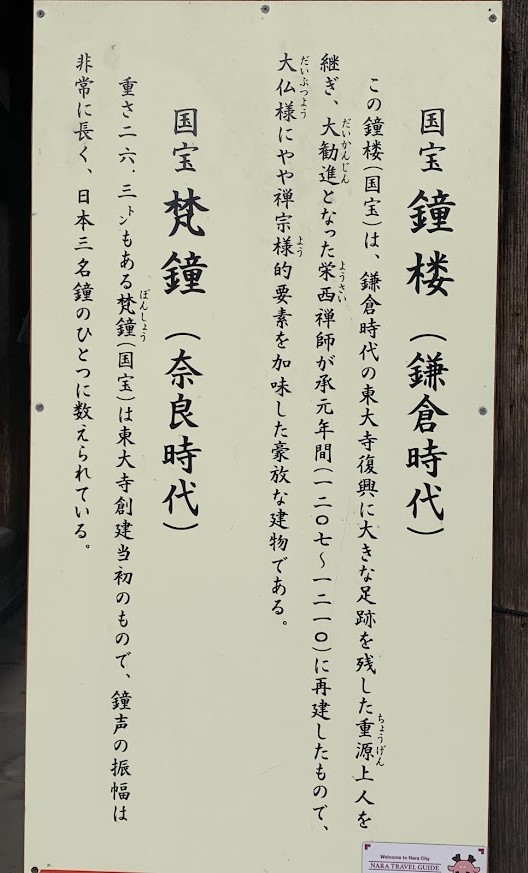 国宝 鐘楼（鎌倉時代）
この鐘楼（国宝）は、鎌倉時代の東大寺復興に大きな足跡を残した重源上人を
ちょうげん
継ぎ、大勧進となった栄西禅師が承元年間（一二〇七～一二一〇）に再建したもので、
だいかんじん
ようさい
大仏様にやや禅宗様的要素を加味した豪放な建物である。
だいぶつよう
よう
国宝 梵鐘（奈良時代）
重さ二六．三㌧もある梵鐘（国宝）は東大寺創建当初のもので、鐘声の振幅は
ぼんしょう
非常に長く、日本三名鐘のひとつに数えられている。
Welcome to Nara City
NARA TRAVEL GUIDE